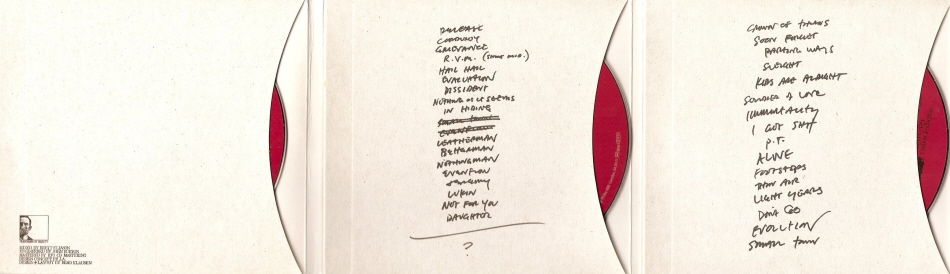 RELEASE
CORDUROY
GRIEVANCE
R.V.M. (SOME MOD.)
HAIL HAIL
EVACUATION
DISSIDENT
NOTHING AS IT SEEMS
IN HIDING
SMALL TOWN
EVENFLOW
LEATHERMAN
BETTERMAN
NOTHINGMAN
EVENFLOW
LUKIN
NOT FOR YOU
DAUGHTER
?
CROWN OF THORNS
SOON FORGET
PARTING WAYS
SLEIGHT
KIDS ARE ALRIGHT
SOLDIER OF LOVE
IMMORTALITY
I GOT SHIT
P.T.
ALIVE
FOOTSTEPS
THIN AIR
LIGHT YEARS
DON'T GO
EVOLUTION
SMALL TOWN
MIXED BY BRETT ELIASON